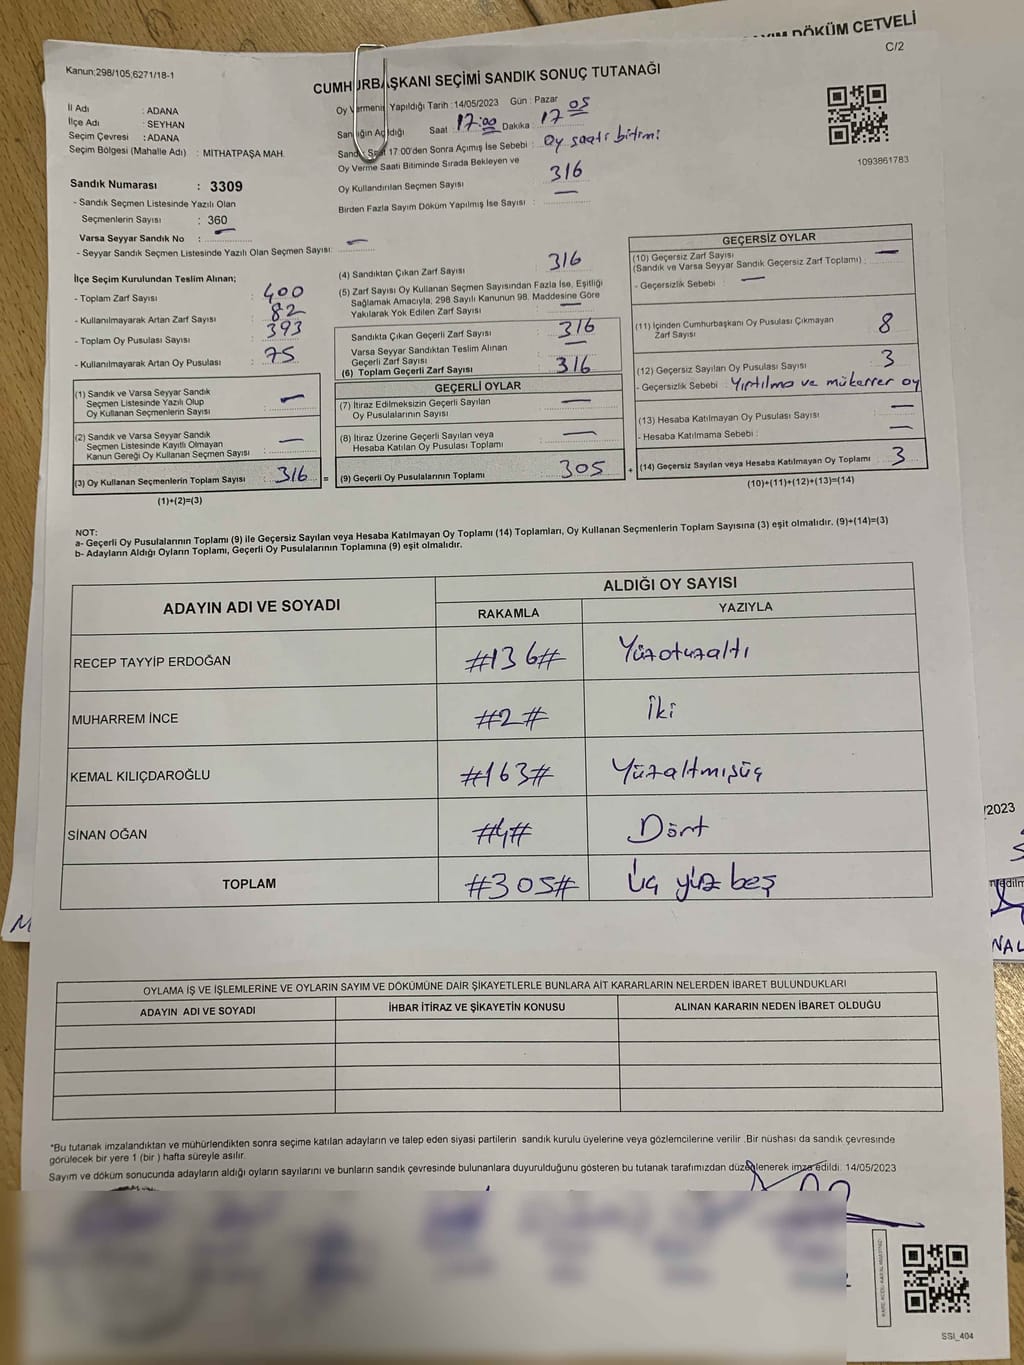 YIM DÖKÜM CETVELİ
C/2
Kanun;298/105;6271/18-1
CUMHURBAŞKANI SEÇİMİ SANDIK SONUÇ TUTANAĞI
İl Adı : ADANA
İlçe Adı : SEYHAN
Seçim Çevresi : ADANA
Seçim Bölgesi (Mahalle Adı) : MITHATPAŞA MAH.
Oy Vermenin Yapıldığı Tarih :14/05/2023 Gün : Pazar
Sandığın Açıldığı Saat : 17:00 Dakika : 17 05
Sandık Saat 17:00'den Sonra Açımış İse Sebebi : Oy saati bitimi
Oy Verme Saati Bitiminde Sırada Bekleyen ve
Oy Kullandırılan Seçmen Sayısı 316
Birden Fazla Sayım Döküm Yapılmış İse Sayısı : —
1093861783
Sandık Numarası : 3309
- Sandık Seçmen Listesinde Yazılı Olan
Seçmenlerin Sayısı : 360
Varsa Seyyar Sandık No : —
- Seyyar Sandık Seçmen Listesinde Yazılı Olan Seçmen Sayısı: —
İlçe Seçim Kurulundan Teslim Alınan;
- Toplam Zarf Sayısı : 400
- Kullanılmayarak Artan Zarf Sayısı : 82
- Toplam Oy Pusulası Sayısı : 393
- Kullanılmayarak Artan Oy Pusulası : 75
(1) Sandık ve Varsa Seyyar Sandık
Seçmen Listesinde Yazılı Olup
Oy Kullanan Seçmenlerin Sayısı : —
(2) Sandık ve Varsa Seyyar Sandık
Seçmen Listesinde Kayıtlı Olmayan
Kanun Gereği Oy Kullanan Seçmen Sayısı : —
(3) Oy Kullanan Seçmenlerin Toplam Sayısı : 316 =
(1)+(2)=(3)
(4) Sandıktan Çıkan Zarf Sayısı : 316
(5) Zarf Sayısı Oy Kullanan Seçmen Sayısından Fazla İse, Eşitliği
Sağlamak Amacıyla; 298 Sayılı Kanunun 98. Maddesine Göre
Yakılarak Yok Edilen Zarf Sayısı : —
Sandıkta Çıkan Geçerli Zarf Sayısı : 316
Varsa Seyyar Sandıktan Teslim Alınan
Geçerli Zarf Sayısı : —
(6) Toplam Geçerli Zarf Sayısı : 316
GEÇERLİ OYLAR
(7) İtiraz Edilmeksizin Geçerli Sayılan
Oy Pusulalarının Sayısı : —
(8) İtiraz Üzerine Geçerli Sayılan veya
Hesaba Katılan Oy Pusulası Toplamı : —
(9) Geçerli Oy Pusulalarının Toplamı : 305 +
GEÇERSİZ OYLAR
(10) Geçersiz Zarf Sayısı
(Sandık ve Varsa Seyyar Sandık Geçersiz Zarf Toplamı) : —
- Geçersizlik Sebebi : —
(11) İçinden Cumhurbaşkanı Oy Pusulası Çıkmayan
Zarf Sayısı : 8
(12) Geçersiz Sayılan Oy Pusulası Sayısı : 3
- Geçersizlik Sebebi : Yırtılma ve mükerrer oy
(13) Hesaba Katılmayan Oy Pusulası Sayısı : —
- Hesaba Katılmama Sebebi : —
(14) Geçersiz Sayılan veya Hesaba Katılmayan Oy Toplamı : 3
(10)+(11)+(12)+(13)=(14)
NOT:
a- Geçerli Oy Pusulalarının Toplamı (9) ile Geçersiz Sayılan veya Hesaba Katılmayan Oy Toplamı (14) Toplamları, Oy Kullanan Seçmenlerin Toplam Sayısına (3) eşit olmalıdır. (9)+(14)=(3)
b- Adayların Aldığı Oyların Toplamı, Geçerli Oy Pusulalarının Toplamına (9) eşit olmalıdır.
ADAYIN ADI VE SOYADI ALDIĞI OY SAYISI
RAKAMLA YAZIYLA
RECEP TAYYİP ERDOĞAN #136# Yüzotuzaltı
MUHARREM İNCE #2# İki
KEMAL KILIÇDAROĞLU #163# Yüzaltmışüç
SİNAN OĞAN #4# Dört
TOPLAM #305# Üç yüz beş
OYLAMA İŞ VE İŞLEMLERİNE VE OYLARIN SAYIM VE DÖKÜMÜNE DAİR ŞİKAYETLERLE BUNLARA AİT KARARLARIN NELERDEN İBARET BULUNDUKLARI
ADAYIN ADI VE SOYADI İHBAR İTİRAZ VE ŞİKAYETİN KONUSU ALINAN KARARIN NEDEN İBARET OLDUĞU
*Bu tutanak imzalandıktan ve mühürlendikten sonra seçime katılan adayların ve talep eden siyasi partilerin sandık kurulu üyelerine veya gözlemcilerine verilir .Bir nüshası da sandık çevresinde
görülecek bir yere 1 (bir ) hafta süreyle asılır.
Sayım ve döküm sonucunda adayların aldığı oyların sayılarını ve bunların sandık çevresinde bulunanlara duyurulduğunu gösteren bu tutanak tarafımızdan düzenlenerek imza edildi. 14/05/2023
SSI_404
/2023
NAL